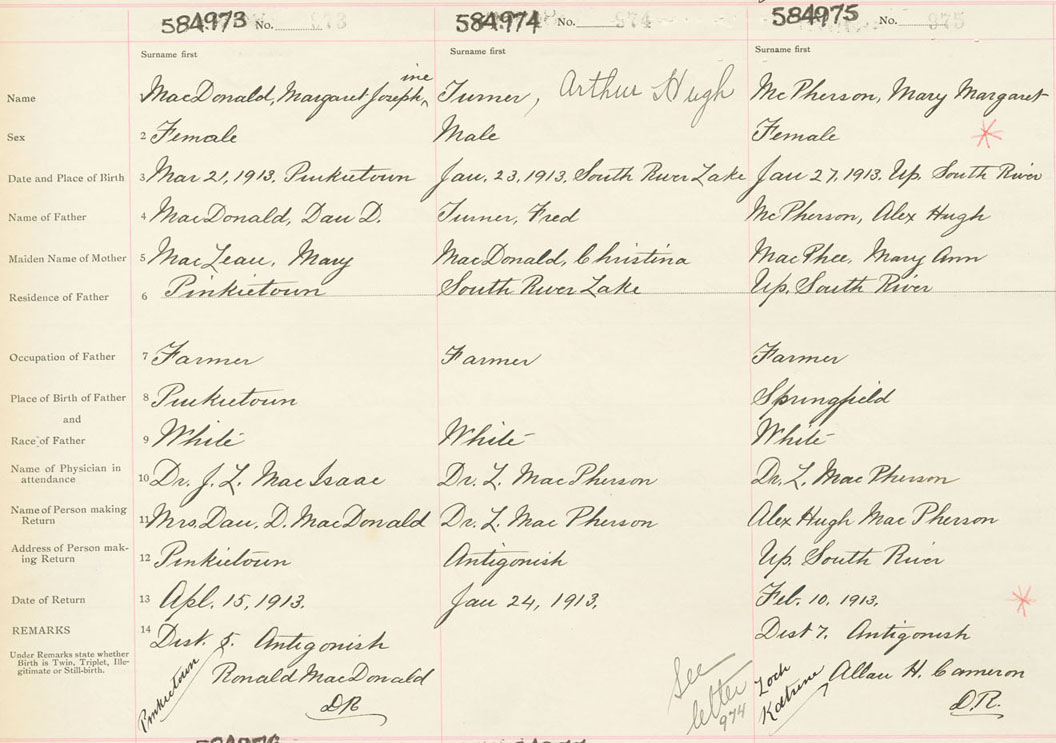 584973 No. 973
584974 No. 974
584975 No. 975
Surname first
Surname first
Surname first
Name
MacDonald, Margaret Josephine
Turner, Arthur Hugh
McPherson, Mary Margaret
Sex
2 Female
Male
Female
Date and Place of Birth
3 Mar 21, 1913. Pinkietown
Jan. 23, 1913. South River Lake
Jan 27, 1913. Up. South River
Name of Father
4 MacDonald, Dan D.
Turner, Fred
McPherson, Alex Hugh
Maiden Name of Mother
5 MacLean, Mary
MacDonald, Christina
MacPhee, Mary Ann
Residence of Father
6 Pinkietown
South River Lake
Up. South River
Occupation of Father
7 Farmer
Farmer
Farmer
Place of Birth of Father
8 Pinkietown
Springfield
and
Race of Father
9 White
White
White
Name of Physician in
attendance
10 Dr. J. L. MacIsaac
Dr. L. MacPherson
Dr. L. MacPherson
Name of Person making
Return
11 Mrs. Dan. D. MacDonald
Dr. L. MacPherson
Alex Hugh MacPherson
Address of Person mak-
ing Return
12 Pinkietown
Antigonish
Up. South River
Date of Return
13 Apl. 15, 1913.
Jan 24, 1913.
Feb. 10. 1913.
REMARKS
14 Dist. 5. Antigonish
Dist 7. Antigonish
Under Remarks state whether
Birth is Twin, Triplet, Ille-
gitimate or Still-birth.
Pinkietown
Ronald MacDonald
DR
See
letter
974
Loch
Katrine
Allan H. Cameron
D.R.